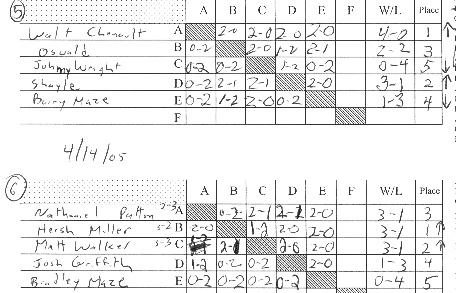 5 A B C D E F W/L Place
Walt Chenault A 2-0 2-0 2-0 2-0 4-0 1
Oswald B 0-2 2-0 1-2 2-1 2-2 3
Johnny Wright C 0-2 0-2 1-2 0-2 0-4 5
Shayle D 0-2 2-1 2-1 2-0 3-1 2
Barry Maze E 0-2 1-2 2-0 0-2 1-3 4
F
4/14/05
6 A B C D E F W/L Place
Nathaniel Patton A 0-2 2-1 2-1 2-0 3-1 3
Hersh Miller B 2-0 1-2 2-0 2-0 3-1 1
Matt Walker C 2-0 2-0 3-1 2
Josh Griffith D 1-2 0-2 0-2 2-0 1-3 4
Bradley Maze E 0-2 0-2 0-2 0-2 0-4 5